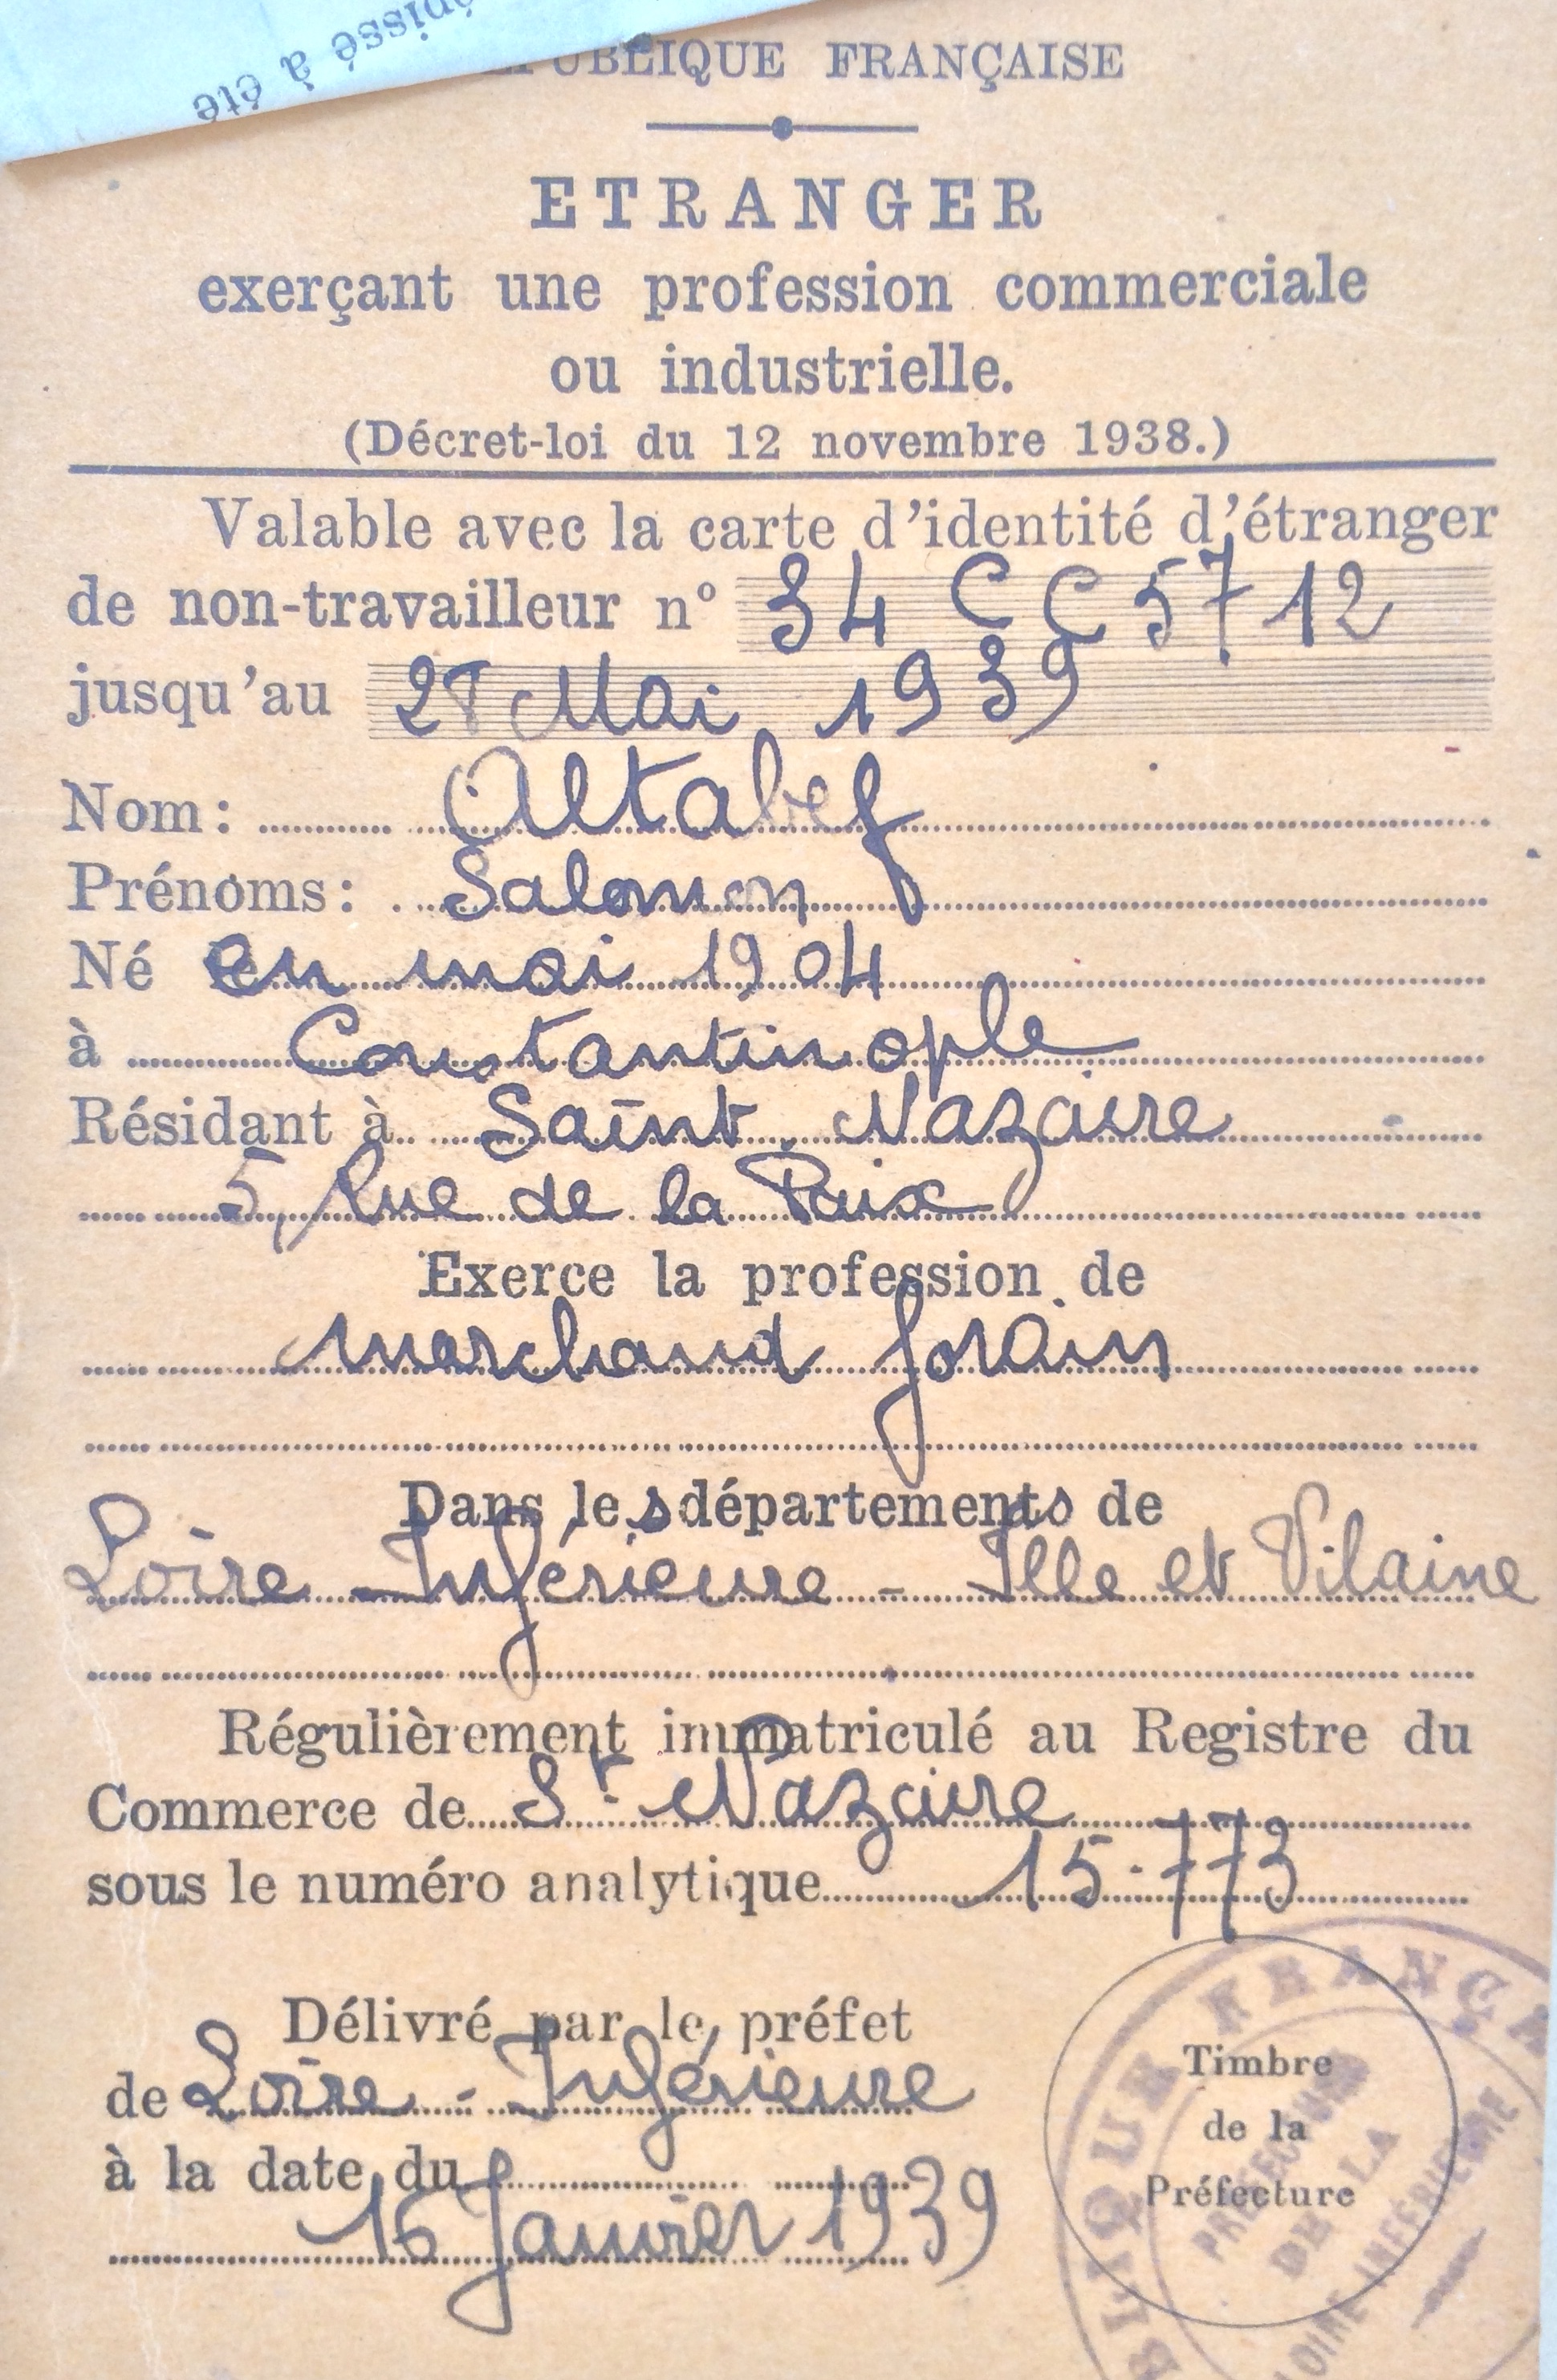 épissé à été
RÉPUBLIQUE FRANÇAISE
ETRANGER
exerçant une profession commerciale
ou industrielle.
(Décret-loi du 12 novembre 1938.)
Valable avec la carte d'identité d'étranger
de non-travailleur n° 34 CC 5712
jusqu'au 28 Mai 1939
Nom: Altabef
Prénoms: Salomon
Né en mai 1904
à Constantinople
Résidant à Saint Nazaire
5, Rue de la Paix
Exerce la profession de
marchand forain
Dans les départements de
Loire-Inférieure - Ille et Vilaine
Régulièrement immatriculé au Registre du
Commerce de St Nazaire
sous le numéro analytique 15.773
Délivré par le préfet
de Loire-Inférieure
à la date du
16 Janvier 1939
Timbre
de la
Préfecture
BLIQUE FRANÇA
PRÉFECTURE
DE LA
LOIRE INFÉRIEURE